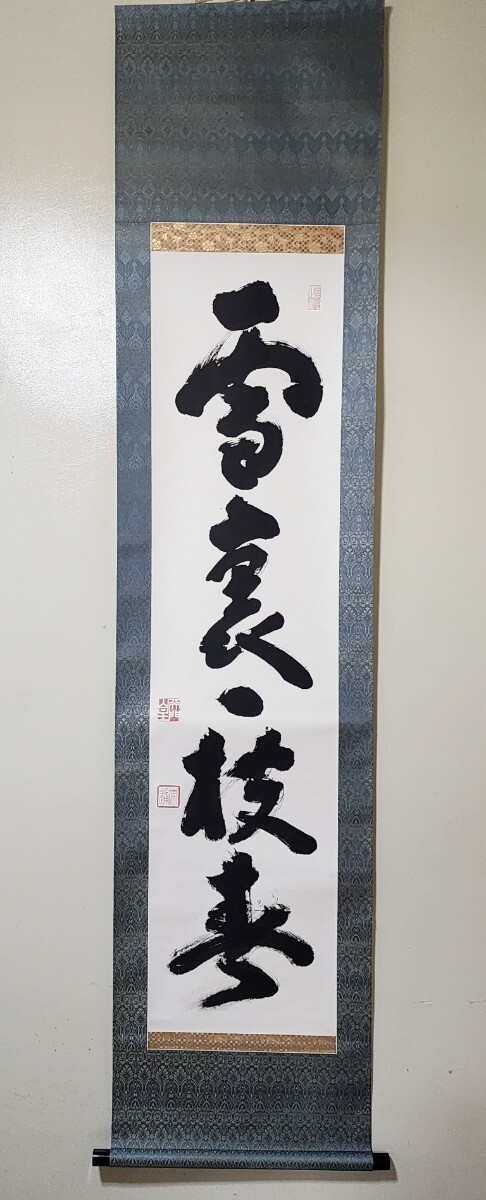 雪裏一枝春